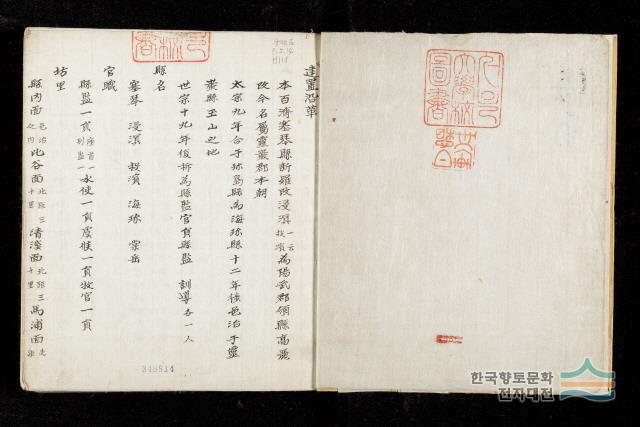 建置沿革
本百濟塞琴縣新羅改浸溟一云投濱為陽武郡領縣高麗
改今名屬靈巖郡本朝
太宗九年合于珍島縣為海珍縣十二年移邑治于靈
巖縣玉山之地
世宗十九年復析為縣監官員縣監 訓導各一人
縣名
塞琴 浸溟 投濱 海珍 棠岳
官職
縣監一員座首一別監一水使一員虞候一員牧官一員
坊里
縣內面邑治之內比谷面北距三十里清溪面北距三十里馬浦面北距
348814
한국향토문화
전자대전